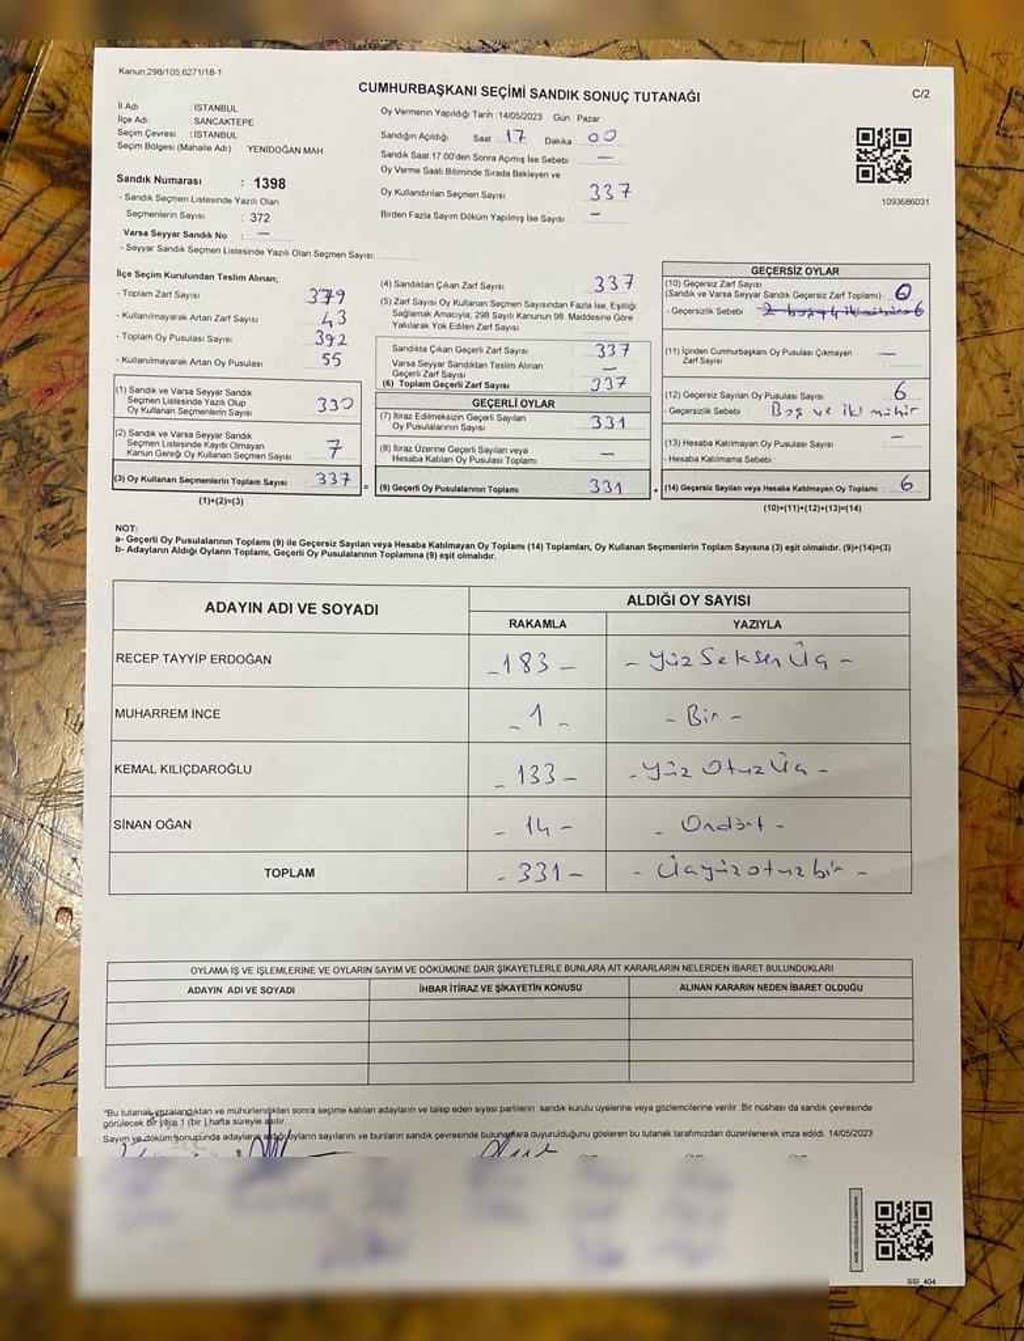 Kanun:298/105,6271/18-1
CUMHURBAŞKANI SEÇİMİ SANDIK SONUÇ TUTANAĞI
C/2
İl Adı : İSTANBUL
İlçe Adı : SANCAKTEPE
Seçim Çevresi : İSTANBUL
Seçim Bölgesi (Mahalle Adı) YENİDOĞAN MAH
Sandık Numarası : 1398
- Sandık Seçmen Listesinde Yazılı Olan
Seçmenlerin Sayısı : 372
Varsa Seyyar Sandık No : —
- Seyyar Sandık Seçmen Listesinde Yazılı Olan Seçmen Sayısı:
Oy Vermenin Yapıldığı Tarih :14/05/2023 Gün Pazar
Sandığın Açıldığı Saat 17 Dakika 00
Sandık Saat 17.00'den Sonra Açımış İse Sebebi —
Oy Verme Saati Bitiminde Sırada Bekleyen ve
Oy Kullandırılan Seçmen Sayısı 337
Birden Fazla Sayım Döküm Yapılmış İse Sayısı —
1093686031
İlçe Seçim Kurulundan Teslim Alınan;
- Toplam Zarf Sayısı 379
- Kullanılmayarak Artan Zarf Sayısı 43
- Toplam Oy Pusulası Sayısı 392
- Kullanılmayarak Artan Oy Pusulası 55
(1) Sandık ve Varsa Seyyar Sandık
Seçmen Listesinde Yazılı Olup
Oy Kullanan Seçmenlerin Sayısı 330
(2) Sandık ve Varsa Seyyar Sandık
Seçmen Listesinde Kayıtlı Olmayan
Kanun Gereği Oy Kullanan Seçmen Sayısı 7
(3) Oy Kullanan Seçmenlerin Toplam Sayısı 337 =
(1)+(2)=(3)
(4) Sandıktan Çıkan Zarf Sayısı 337
(5) Zarf Sayısı Oy Kullanan Seçmen Sayısından Fazla İse, Eşitliği
Sağlamak Amacıyla, 298 Sayılı Kanunun 98. Maddesine Göre
Yakılarak Yok Edilen Zarf Sayısı
Sandıkta Çıkan Geçerli Zarf Sayısı 337
Varsa Seyyar Sandıktan Teslim Alınan
Geçerli Zarf Sayısı —
(6) Toplam Geçerli Zarf Sayısı 337
GEÇERLİ OYLAR
(7) İtiraz Edilmeksizin Geçerli Sayılan
Oy Pusulalarının Sayısı 331
(8) İtiraz Üzerine Geçerli Sayılan veya
Hesaba Katılan Oy Pusulası Toplamı —
(9) Geçerli Oy Pusulalarının Toplamı 331 +
GEÇERSİZ OYLAR
(10) Geçersiz Zarf Sayısı
(Sandık ve Varsa Seyyar Sandık Geçersiz Zarf Toplamı) 0
- Geçersizlik Sebebi
(11) İçinden Cumhurbaşkanı Oy Pusulası Çıkmayan
Zarf Sayısı —
(12) Geçersiz Sayılan Oy Pusulası Sayısı 6
- Geçersizlik Sebebi Boş ve İki mühür
(13) Hesaba Katılmayan Oy Pusulası Sayısı —
- Hesaba Katılmama Sebebi
(14) Geçersiz Sayılan veya Hesaba Katılmayan Oy Toplamı 6
(10)+(11)+(12)+(13)=(14)
NOT:
a- Geçerli Oy Pusulalarının Toplamı (9) ile Geçersiz Sayılan veya Hesaba Katılmayan Oy Toplamı (14) Toplamları, Oy Kullanan Seçmenlerin Toplam Sayısına (3) eşit olmalıdır. (9)+(14)=(3)
b- Adayların Aldığı Oyların Toplamı, Geçerli Oy Pusulalarının Toplamına (9) eşit olmalıdır.
ADAYIN ADI VE SOYADI
ALDIĞI OY SAYISI
RAKAMLA YAZIYLA
RECEP TAYYİP ERDOĞAN -183- -Yüz Seksen Üç-
MUHARREM İNCE -1- -Bir-
KEMAL KILIÇDAROĞLU -133- -Yüz Otuz Üç-
SİNAN OĞAN -14- -Ondört-
TOPLAM -331- -Üçyüzotuzbir-
OYLAMA İŞ VE İŞLEMLERİNE VE OYLARIN SAYIM VE DÖKÜMÜNE DAİR ŞİKAYETLERLE BUNLARA AİT KARARLARIN NELERDEN İBARET BULUNDUKLARI
ADAYIN ADI VE SOYADI İHBAR İTİRAZ VE ŞİKAYETİN KONUSU ALINAN KARARIN NEDEN İBARET OLDUĞU
*Bu tutanak imzalandıktan ve mühürlendikten sonra seçime katılan adayların ve talep eden siyasi partilerin sandık kurulu üyelerine veya gözlemcilerine verilir. Bir nüshası da sandık çevresinde
görülecek bir yere 1 (bir ) hafta süreyle asılır.
Sayım ve döküm sonucunda adayların aldığı oyların sayılarını ve bunların sandık çevresinde bulunanlara duyurulduğunu gösteren bu tutanak tarafımızdan düzenlenerek imza edildi. 14/05/2023
SSI_404